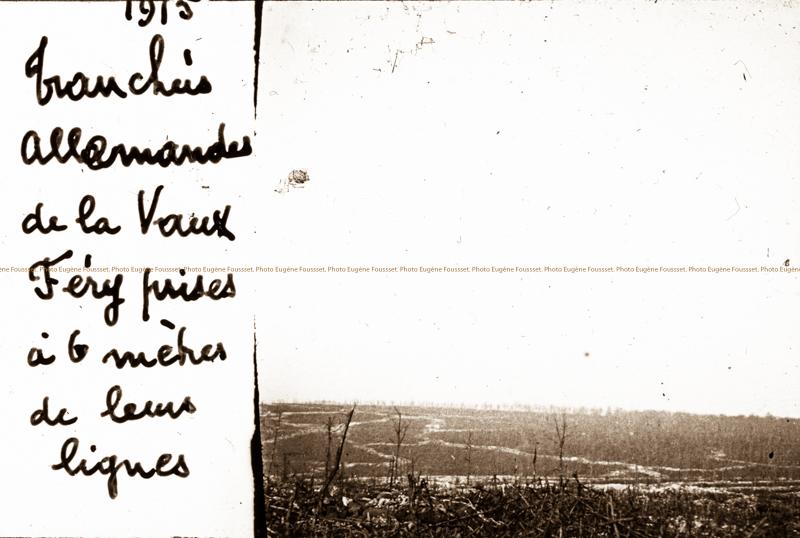 1915
Tranchées
allemandes
de la Vaux
Féry prises
à 6 mètres
de leurs
lignes
Photo Eugène Foussset, Photo Eugène Foussset, Photo Eugène Foussset, Photo Eugène Foussset, Photo Eugène Foussset, Photo Eugène Foussset, Photo Eugène Foussset, Photo Eugène Foussset, Photo Eugène Foussset, Photo Eugène Foussset, Photo Eugène